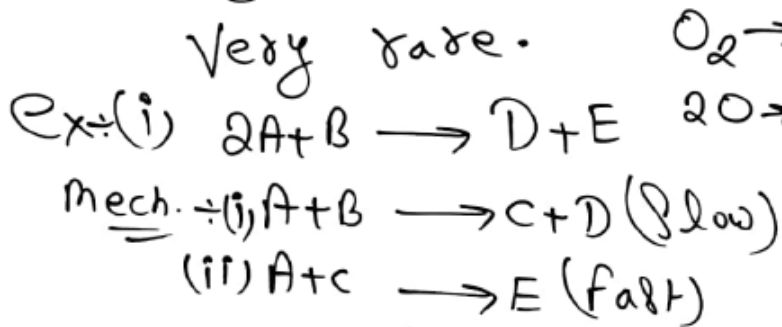 Very rare.
O₂→
ex÷(i) 2A+B ⟶ D+E
2O→
Mech. ÷(i) A+B ⟶ C+D (Slow)
(ii) A+C ⟶ E (fast)